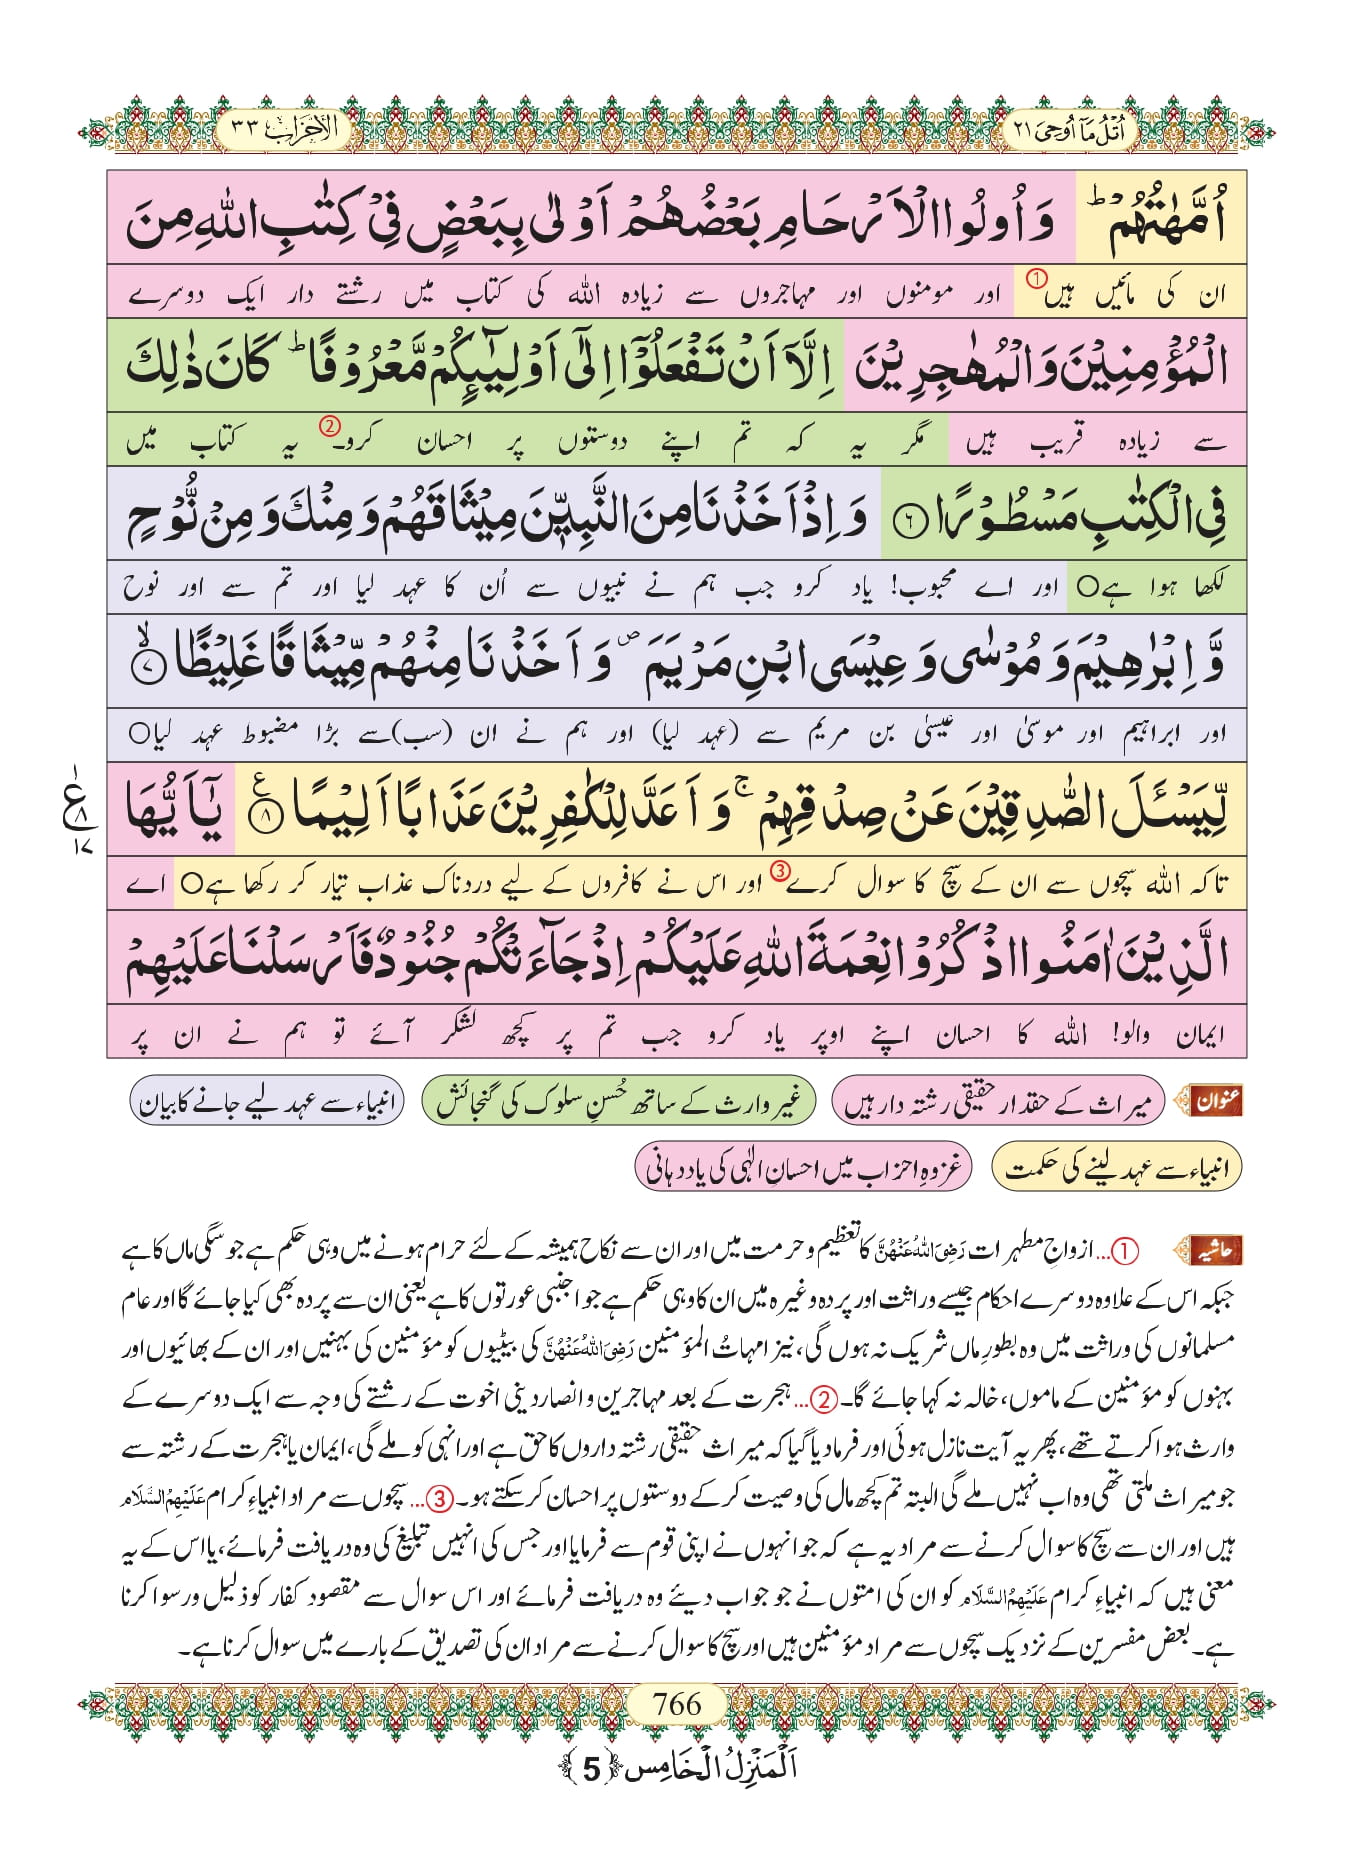 اُتْلُ مَاۤ اُوْحِیَ ٢١
الاحزاب ٣٣
اُمَّهٰتُهُمْ ؕ وَ اُولُوا الْاَرْحَامِ بَعْضُهُمْ اَوْلٰى بِبَعْضٍ فِیْ كِتٰبِ اللّٰهِ مِنَ
ان کی مائیں ہیں① اور مومنوں اور مہاجروں سے زیادہ اللہ کی کتاب میں رشتے دار ایک دوسرے
الْمُؤْمِنِیْنَ وَ الْمُهٰجِرِیْنَ اِلَّاۤ اَنْ تَفْعَلُوْۤا اِلٰۤى اَوْلِیٰٓىٕكُمْ مَّعْرُوْفًا ؕ كَانَ ذٰلِكَ
سے زیادہ قریب ہیں مگر یہ کہ تم اپنے دوستوں پر احسان کرو۔② یہ کتاب میں
فِی الْكِتٰبِ مَسْطُوْرًا ۶ وَ اِذْ اَخَذْنَا مِنَ النَّبِیّٖنَ مِیْثَاقَهُمْ وَ مِنْكَ وَ مِنْ نُّوْحٍ
لکھا ہوا ہے○ اور اے محبوب! یاد کرو جب ہم نے نبیوں سے اُن کا عہد لیا اور تم سے اور نوح
وَّ اِبْرٰهِیْمَ وَ مُوْسٰى وَ عِیْسَى ابْنِ مَرْیَمَ ۪ وَ اَخَذْنَا مِنْهُمْ مِّیْثَاقًا غَلِیْظًا ۙ۷
اور ابراہیم اور موسیٰ اور عیسیٰ بن مریم سے (عہد لیا) اور ہم نے ان (سب) سے بڑا مضبوط عہد لیا○
لِّیَسْــٴَـلَ الصّٰدِقِیْنَ عَنْ صِدْقِهِمْ ۚ وَ اَعَدَّ لِلْكٰفِرِیْنَ عَذَابًا اَلِیْمًا ۠۸ یٰۤاَیُّهَا
ع ٨ ١٧
تاکہ اللہ سچوں سے ان کے سچ کا سوال کرے③ اور اس نے کافروں کے لیے دردناک عذاب تیار کر رکھا ہے○ اے
الَّذِیْنَ اٰمَنُوا اذْكُرُوْا نِعْمَةَ اللّٰهِ عَلَیْكُمْ اِذْ جَآءَتْكُمْ جُنُوْدٌ فَاَرْسَلْنَا عَلَیْهِمْ
ایمان والو! اللہ کا احسان اپنے اوپر یاد کرو جب تم پر کچھ لشکر آئے تو ہم نے ان پر
عنوان میراث کے حقدار حقیقی رشتہ دار ہیں غیر وارث کے ساتھ حُسنِ سلوک کی گنجائش انبیاء سے عہد لیے جانے کا بیان
انبیاء سے عہد لینے کی حکمت غزوہِ احزاب میں احسانِ الٰہی کی یاد دہانی
حاشیہ ①... ازواجِ مطہرات رَضِیَ اللہُ عَنْهُنَّ کا تعظیم و حرمت میں اور ان سے نکاح ہمیشہ کے لئے حرام ہونے میں وہی حکم ہے جو سگی ماں کا ہے
جبکہ اس کے علاوہ دوسرے احکام جیسے وراثت اور پردہ وغیرہ میں ان کا وہی حکم ہے جو اجنبی عورتوں کا ہے یعنی ان سے پردہ بھی کیا جائے گا اور عام
مسلمانوں کی وراثت میں وہ بطورِ ماں شریک نہ ہوں گی، نیز امہاتُ المؤمنین رَضِیَ اللہُ عَنْهُنَّ کی بیٹیوں کو مؤمنین کی بہنیں اور ان کے بھائیوں اور
بہنوں کو مؤمنین کے ماموں، خالہ نہ کہا جائے گا۔ ②... ہجرت کے بعد مہاجرین و انصار دینی اخوت کے رشتے کی وجہ سے ایک دوسرے کے
وارث ہوا کرتے تھے، پھر یہ آیت نازل ہوئی اور فرما دیا گیا کہ میراث حقیقی رشتہ داروں کا حق ہے اور انہی کو ملے گی، ایمان یا ہجرت کے رشتہ سے
جو میراث ملتی تھی وہ اب نہیں ملے گی البتہ تم کچھ مال کی وصیت کر کے دوستوں پر احسان کر سکتے ہو۔ ③... سچوں سے مراد انبیاءِ کرام عَلَیْهِمُ السَّلَام
ہیں اور ان سے سچ کا سوال کرنے سے مراد یہ ہے کہ جو انہوں نے اپنی قوم سے فرمایا اور جس کی انہیں تبلیغ کی وہ دریافت فرمائے، یا اس کے یہ
معنی ہیں کہ انبیاءِ کرام عَلَیْهِمُ السَّلَام کو ان کی امتوں نے جو جواب دیئے وہ دریافت فرمائے اور اس سوال سے مقصود کفار کو ذلیل و رسوا کرنا
ہے۔ بعض مفسرین کے نزدیک سچوں سے مراد مؤمنین ہیں اور سچ کا سوال کرنے سے مراد ان کی تصدیق کے بارے میں سوال کرنا ہے۔
766
اَلْمَنْزِلُ الْخَامِس ﴿5﴾